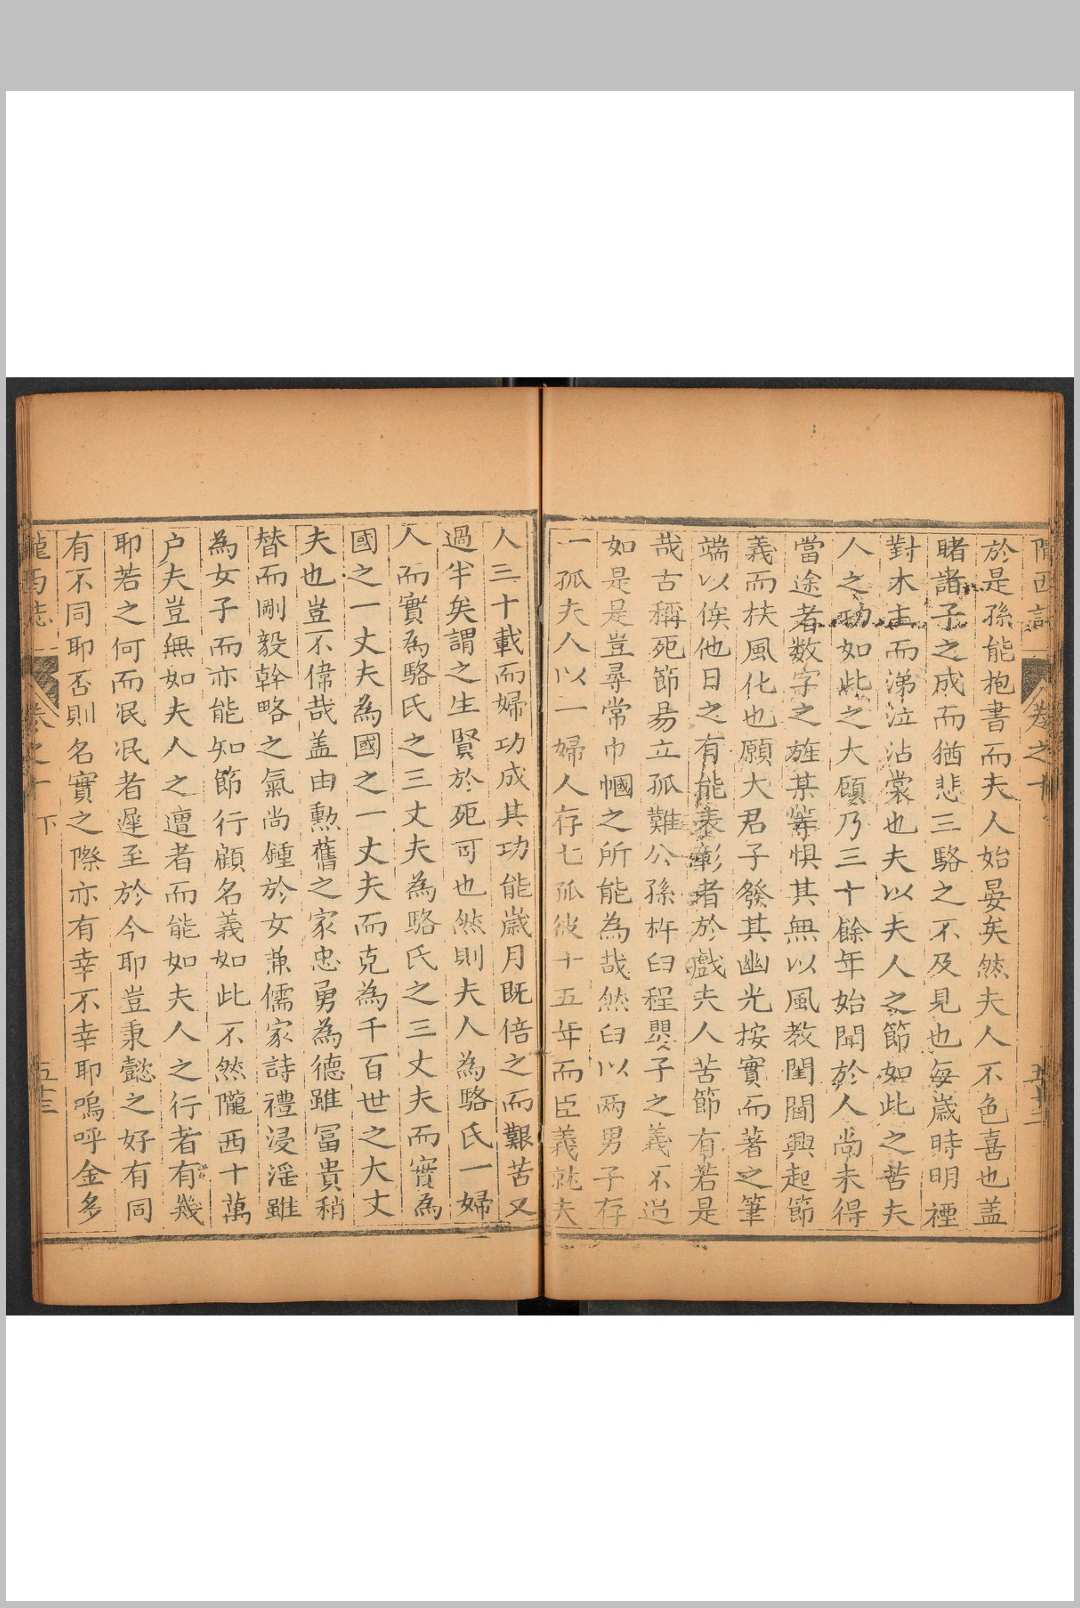 隴西誌 卷之十 五十二
於是孫能抱書而夫人始晏矣然夫人不色喜也盖
睹諸子之成而猶悲三駱之不及見也每歲時明禋
對木主而涕泣沾裳也夫以夫人之節如此之苦夫
人之功如此之大顧乃三十餘年始聞於人尚未得
當途者数字之旌某等惧其無以風教閨閫興起節
義而扶風化也願大君子發其幽光按實而著之筆
端以俟他日之有能表彰者於戲夫人苦節有若是
哉古稱死節易立孤難公孫杵臼程嬰子之義不過
如是是豈尋常巾幗之所能為哉然臼以兩男子存
一孤夫人以一婦人存七孤彼十五年而臣義就夫
人三十載而婦功成其功能歲月既倍之而艱苦又
過半矣謂之生賢於死可也然則夫人為駱氏一婦
人而實為駱氏之三丈夫為駱氏之三丈夫而實為
國之一丈夫為國之一丈夫而克為千百世之大丈
夫也豈不偉哉盖由勲舊之家忠勇為德雖冨貴稍
替而剛毅幹略之氣尚鍾於女兼儒家詩禮浸滛雖
為女子而亦能知節行顧名義如此不然隴西十萬
户夫豈無如夫人之遭者而能如夫人之行者有幾
耶若之何而泯泯者遲至於今耶豈秉懿之好有同
有不同耶否則名實之際亦有幸不幸耶嗚呼金多
隴西誌 卷之十 下 五十三